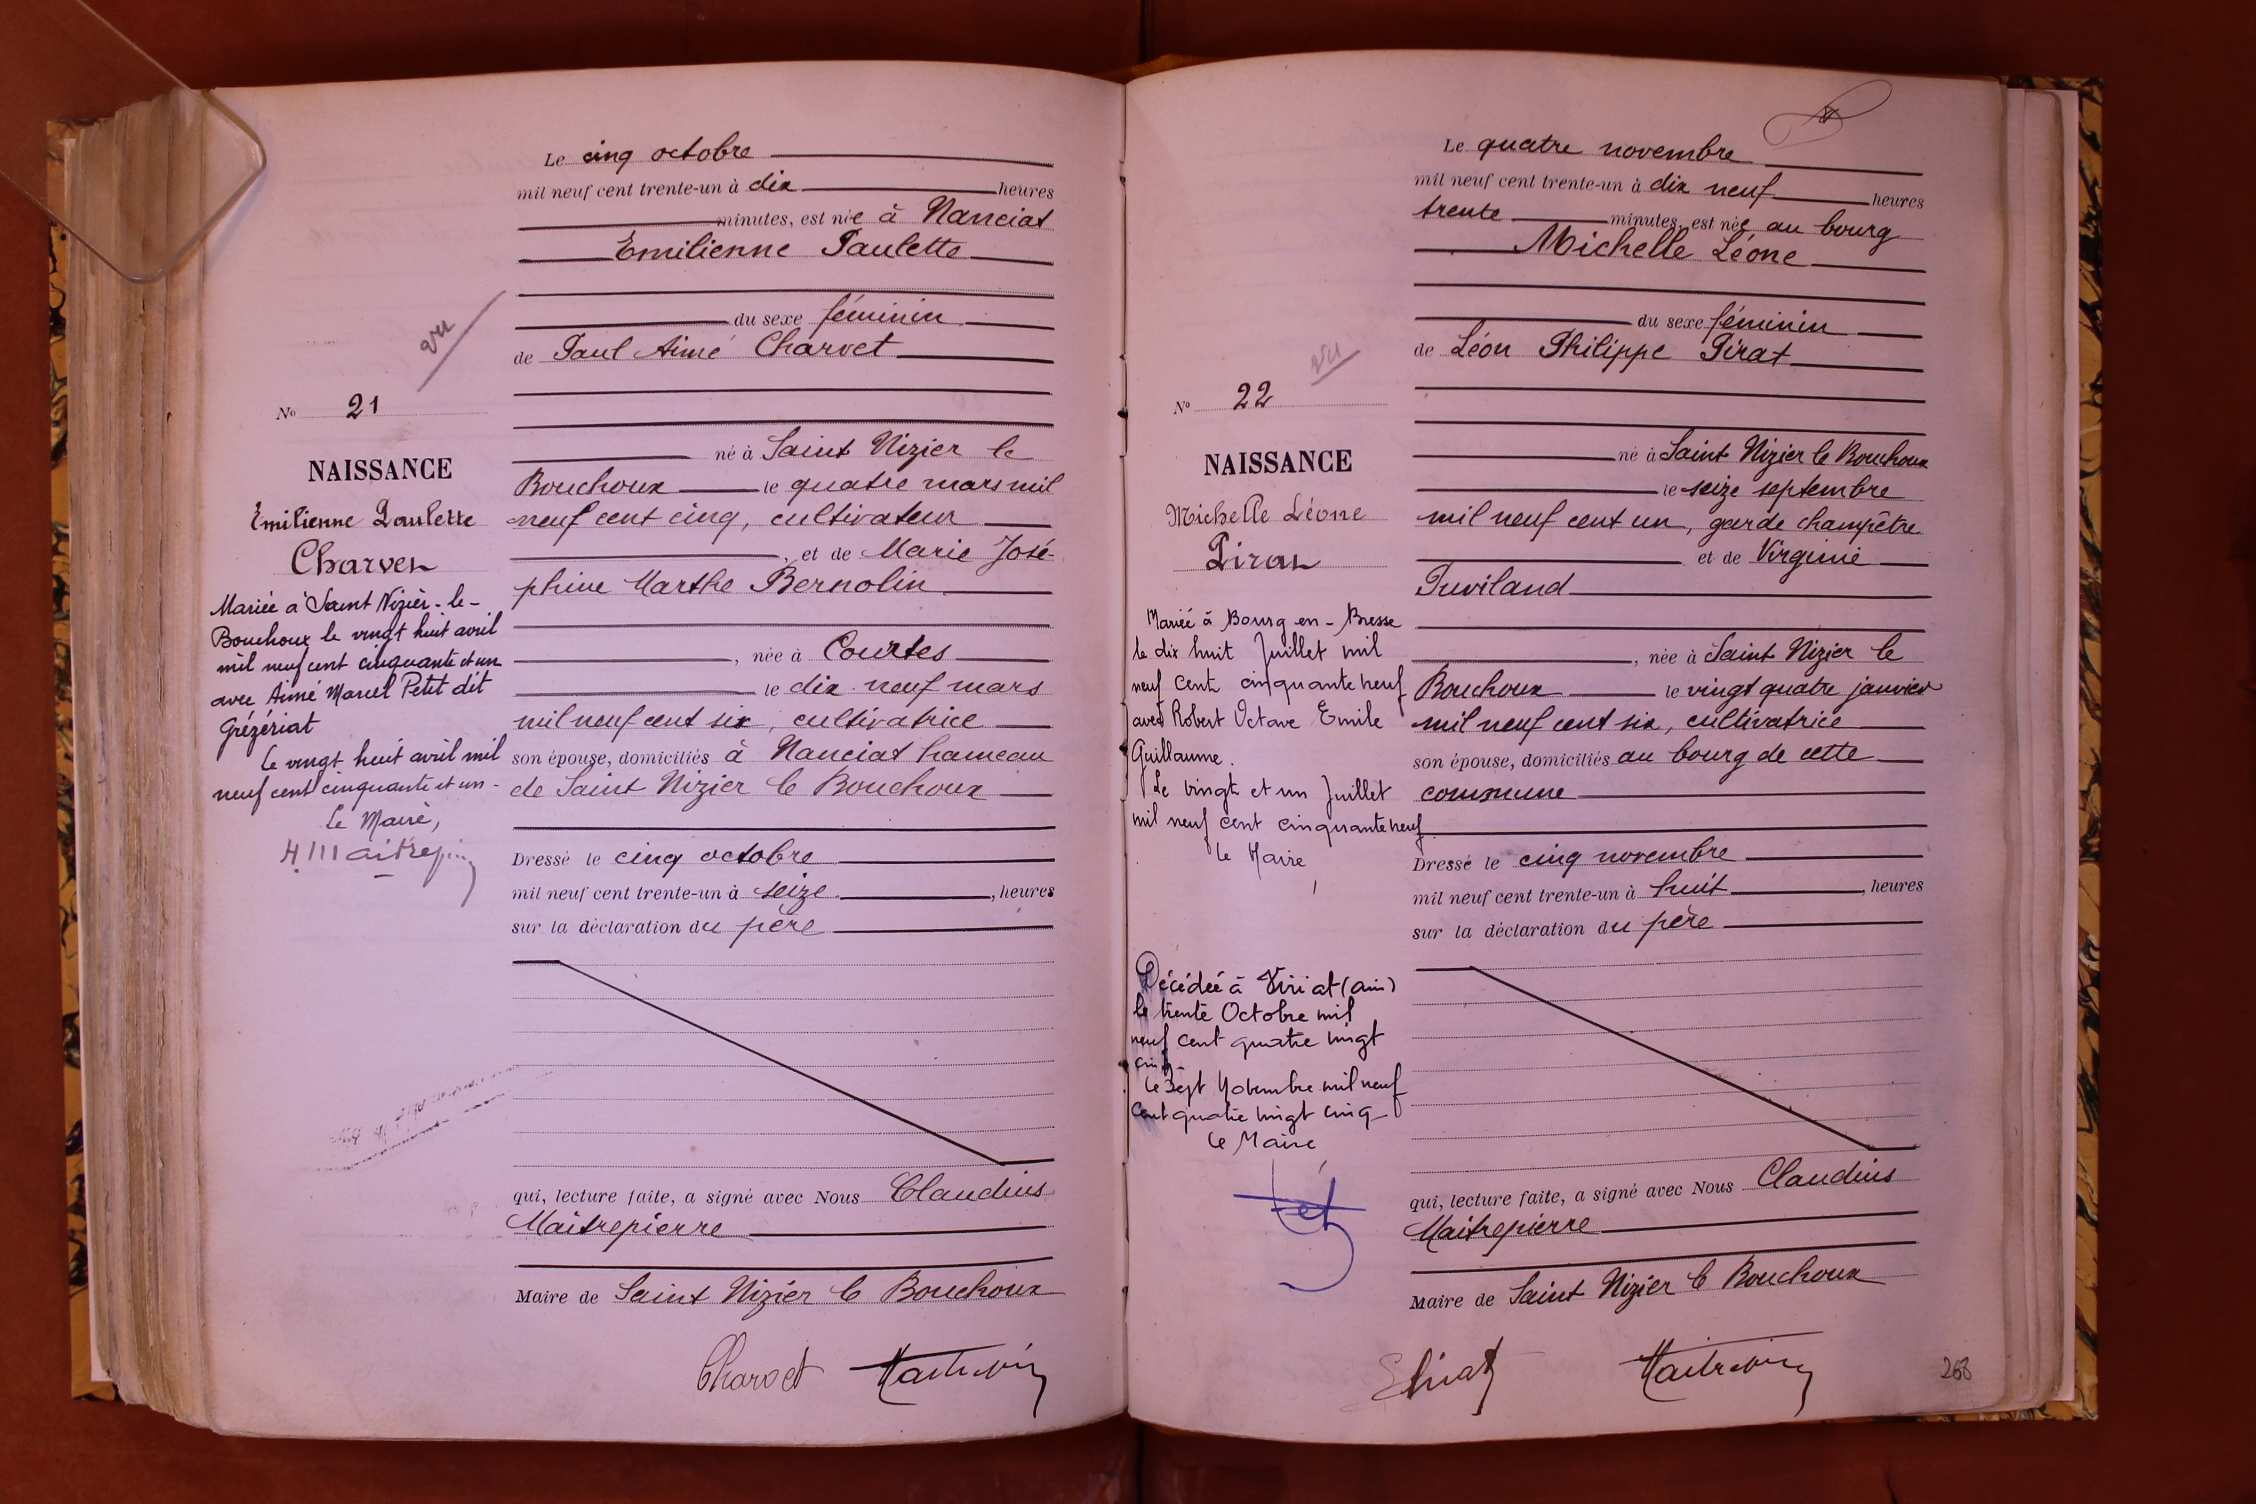 Le cinq octobre
mil neuf cent trente-un à dix heures
minutes, est née à Nanciat
Emilienne Paulette
du sexe féminin
vu
de Paul Aimé Charvet
No 21
né à Saint Nizier le
NAISSANCE
Bouchoux le quatre mars mil
Emilienne Paulette
neuf cent cinq, cultivateur
Charvet
, et de Marie José-
phine Marthe Bernolin
Mariée à Saint Nizier-le-
Bouchoux le vingt huit avril
mil neuf cent cinquante et un
avec Aimé Marcel Petit dit
Grézériat
Le vingt huit avril mil
neuf cent cinquante et un-
Le Maire,
, née à Courtes
le dix neuf mars
mil neuf cent six, cultivatrice
son épouse, domiciliés à Nanciat hameau
de Saint Nizier le Bouchoux
Dressé le cinq octobre
mil neuf cent trente-un à seize, heures
sur la déclaration du père
qui, lecture faite, a signé avec Nous Claudius
Maitrepierre
Maire de Saint Nizier le Bouchoux
Charvet
Le quatre novembre
mil neuf cent trente-un à dix neuf heures
trente minutes, est née au bourg
Michelle Léone
du sexe féminin
vu
de Léon Philippe Pirat
No 22
né à Saint Nizier le Bouchoux
NAISSANCE
le seize septembre
Michelle Léone
mil neuf cent un, garde champêtre
Pirat
et de Virginie
Tuviland
Mariée à Bourg-en-Bresse
le dix huit Juillet mil
neuf cent cinquante neuf
avec Robert Octave Emile
Guillaume.
Le vingt et un Juillet
mil neuf cent cinquante neuf
Le Maire,
, née à Saint Nizier le
Bouchoux le vingt quatre janvier
mil neuf cent six, cultivatrice
son épouse, domiciliés au bourg de cette
commune
Dressé le cinq novembre
mil neuf cent trente-un à huit, heures
sur la déclaration du père
Décédée à Viriat (Ain)
le trente Octobre mil
neuf cent quatre vingt
cinq.
Le sept Novembre mil neuf
cent quatre vingt cinq
Le Maire
qui, lecture faite, a signé avec Nous Claudius
Maitrepierre
Maire de Saint Nizier le Bouchoux
268